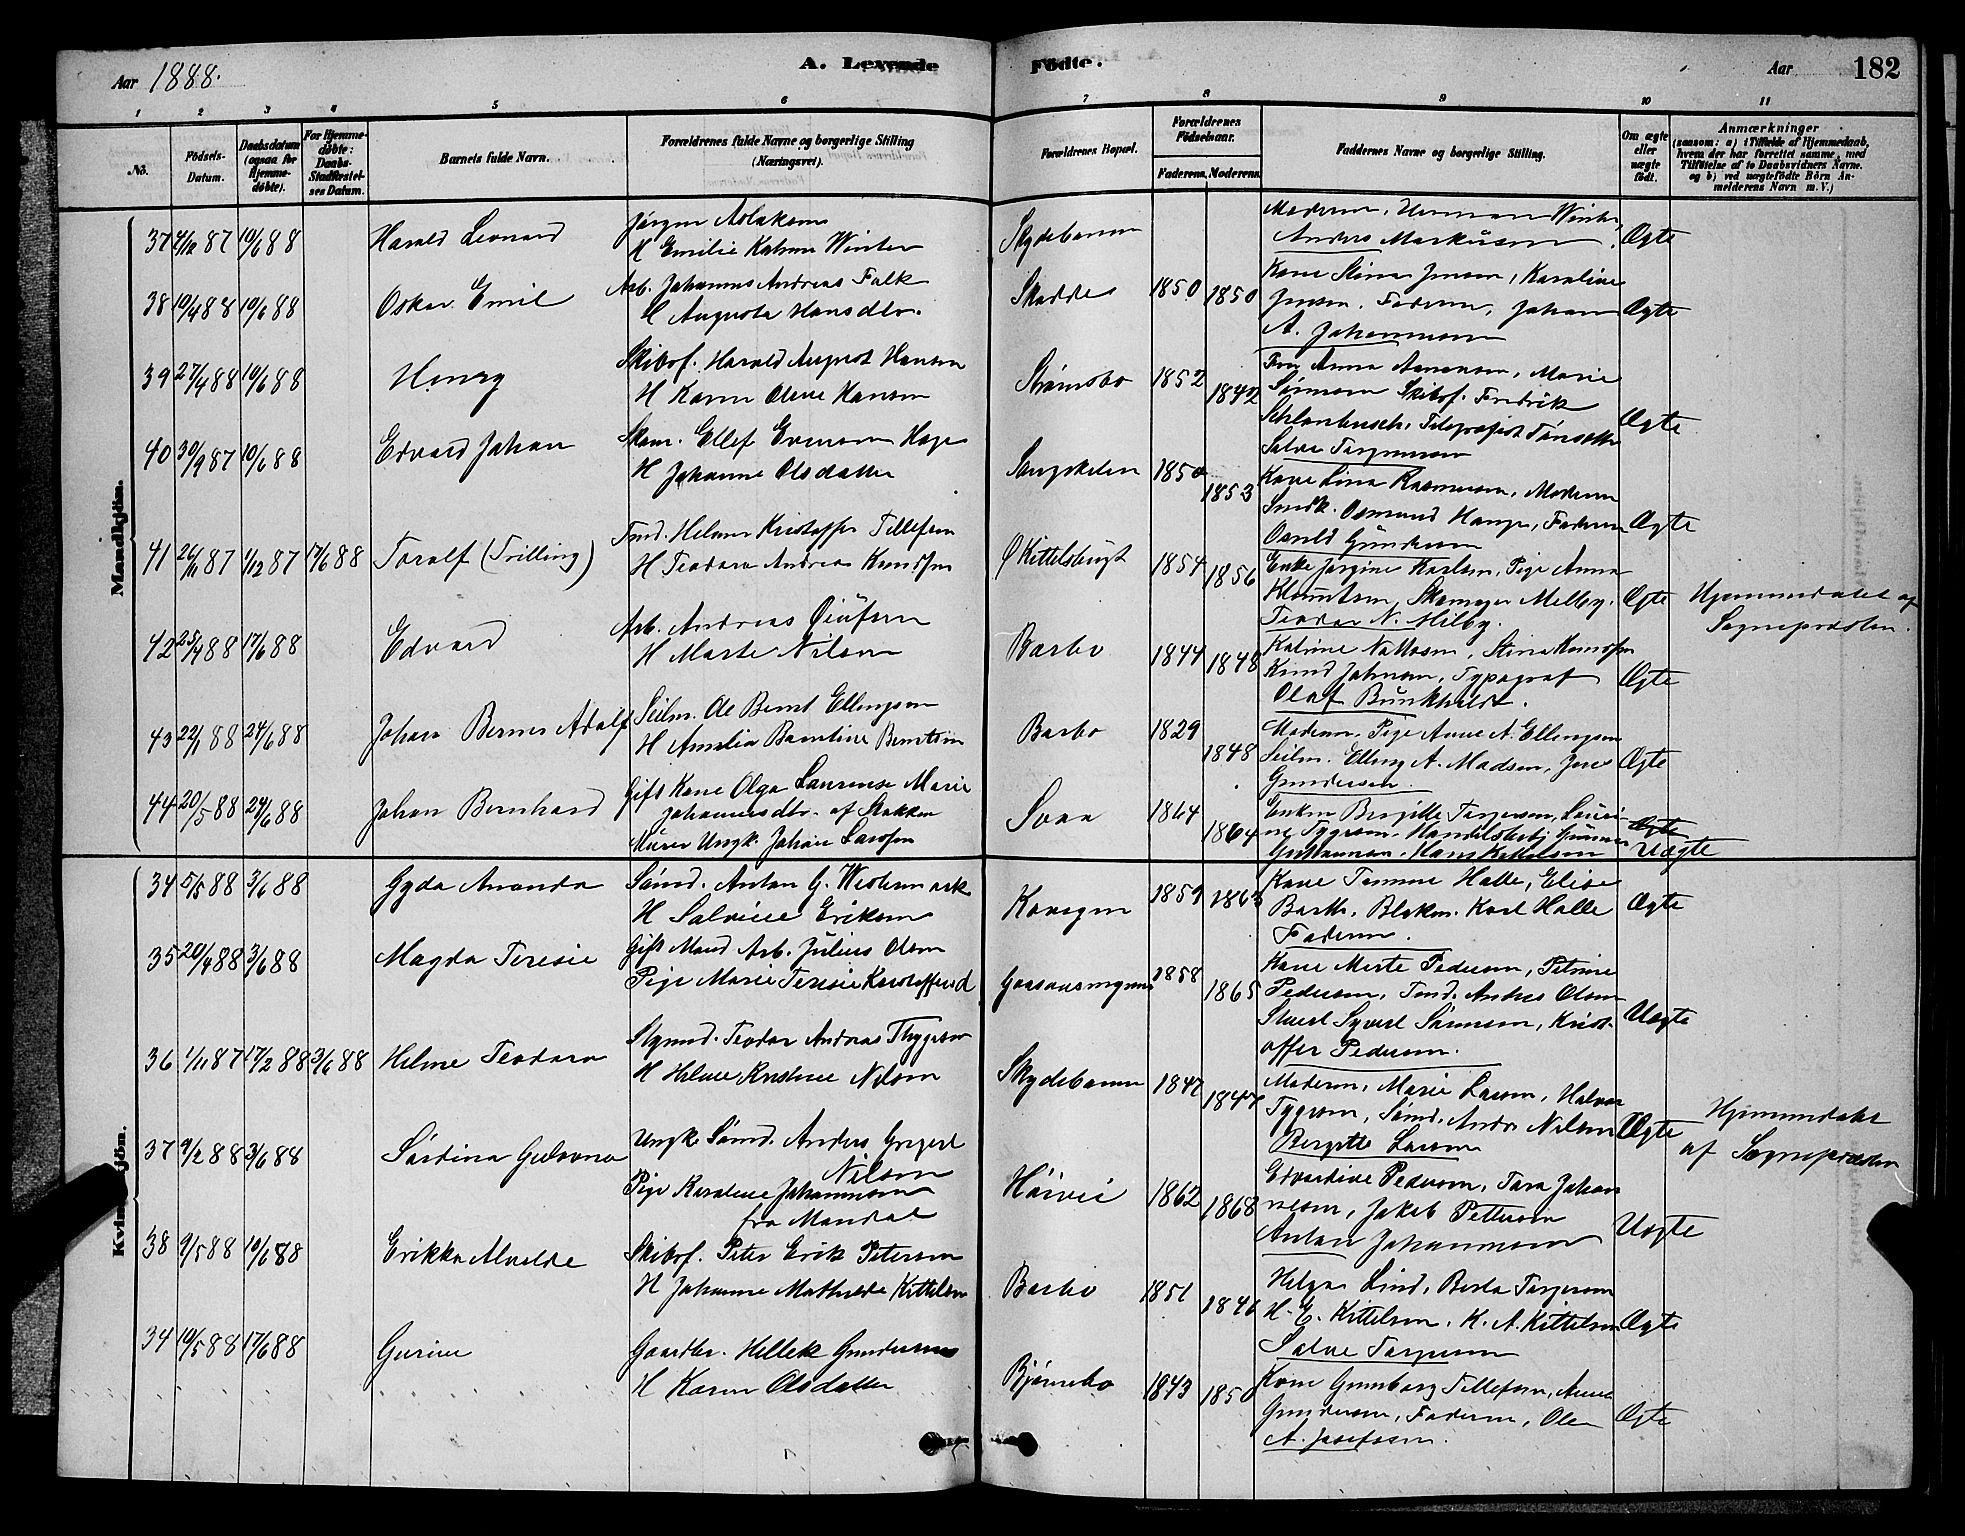 Aar 1888.
A. Levende
Födte.
Aar
182
1 2 3 4 5 6 7 8 9 10 11
No.
Födsels-Datum.
Daabsdatum (ogsaa for Hjemmedöbte).
For Hjemmedöbte: Daabs-Stadfæstelses Datum.
Barnets fulde Navn.
Forældrenes fulde Navne og borgerlige Stilling (Næringsvei).
Forældrenes Bopæl.
Forældrenes Födselsaar.
Faderens. Moderens.
Faddernes Navne og borgerlige Stilling.
Om ægte eller uægte födt.
Anmærkninger
(saasom: a) i Tilfælde af Hjemmedaab,
hvem der har forrettet samme, med
Tilföielse af to Daabsvidners Navne.
og b) ved uægtefödte Börn An-
melderens Navn m. V.)
Mandkjön.
37 4/12 87 10/6 88
Harald Leonard
Jörgen Aslaksen
H Emilie Katrine Winter
Skydebanen
Moderen, Herman Winter,
Anders Markusen
Ægte
38 10/4 88 10/6 88
Oskar Emil
Arb. Johannes Andreas Falk
H Augusta Hansdtr.
1850 1850
Kone Stina Jensen, Karoline
Jensen, Faderen, Johan
A. Johannesen
Ægte
39 27/4 88 10/6 88
Henry
Skibsf. Harald August Hansen
H Karen Olene Hansen
Strømsbo
1852 1842
Fru Anna Aanensen, Marie
Sörensen Skibsf. Fredrik
Telegrafist
Salve Torgersen
Ægte
40 30/9 87 10/6 88
Edvard Johan
Skom. Ellef Evensen Hage
H Johanne Olsdatter
Langskelen
1850 1853
Kone Lina Rasmusen, Moderen
Smedk. Osmund Hange, Faderen
Gundersen
Ægte
41 26/11 87 1/12 87 17/6 88
Toralf (Trilling)
Tmd. Helmer Kristoffer Tellefsen
H Teodora Andrea Knudsen
Ø Kittelsbugt
1854 1856
Enke Jörgine Karlsen, Pige Anna
Klemetsen, Skomager Melby,
Teodor N. Melby.
Ægte
Hjemmedøbt af
Sognepræsten.
42 25/4 88 17/6 88
Edvard
Arb. Andreas Olüfsen
H Marte Nilsen
Barbo
1844 1848
Katrine Nattosen, Stina Knudsen
Knud Johnsen, Typograf
Olaf Bunkholdt.
Ægte
43 22/1 88 24/6 88
Johan Berner Adolf
Seilm. Ole Bernt Ellingsen
H Amalia Berntine Berntsen
Barbo
1829 1848
Moderen, Pige Anne A. Ellingsen
Seilm. Elling A. Madsen, Jens
Gundersen
Ægte
44 20/5 88 24/6 88
Johan Bernhard
Gift Kone Olga Laurense Marie
Johannesdtr. af Stokken
Murer Ungk. Johan Larsen
Svaa
1864 1864
Enken Birgitte Torgersen, Lauri-
ne Tygesen. Handelsbetj. Gunner
Hans Kittelsen
Ægte
Uægte
Kvindkjön.
34 5/5 88 3/6 88
Gyda Amanda
Sömd. Anton G. Westermark
H Salvine Eriksen
1859 1863
Kone Tomine Halle, Elise
Barth, Blokm. Karl Halle
Faderen.
Ægte
35 20/4 88 3/6 88
Magda Teresie
Gift Mand Arb. Julius Olsen
Pige Marie Teresie Kristoffersd
1858 1865
Kone Merte Pedersen, Petrine
Pedersen, Tmd. Andreas Olsen
Stuert Syvert Sörensen, Krist-
offer Pedersen.
Uægte
36 1/11 87 17/2 88 3/6 88
Helene Teodora
Stymd. Teodor Andreas Thygesen
H Helene Kristine Nilsen
Skydebanen
1847 1847
Moderen, Marie Larsen, Halvor
Tygesen, Sömd. Andr Nilsen
Bergitte Larsen
Ægte
Hjemmedøbt
af Sognepræsten
37 9/2 88 3/6 88
Sardina Gulovna
Ungk. Sömd. Anders Gregert
Nilsen
Pige Karoline Johannesen
fra Mandal
Höivei
1862 1868
Edvardine Pedersen, Tara Johan
nesen, Jakob Pettersen
Anton Johannesen
Uægte
38 9/5 88 10/6 88
Erikka Alvelde
Skibsf. Peter Erik Petersen
H Johanne Mathilde Kittelsen
Barbo
1851 1846
Helga Lind, Berta Torgersen
H. E. Kittelsen, K. A. Kittelsen
Salve Torgersen
Ægte
34 10/5 88 17/6 88
Gurine
Gaardbr. Hellek Gundersen
H Karen Olsdatter
Bjørnebo
1843 1850
Kone Gunborg Tellefsen, Anne
Gundersen, Faderen, Ole
A. Josefssen.
Ægte